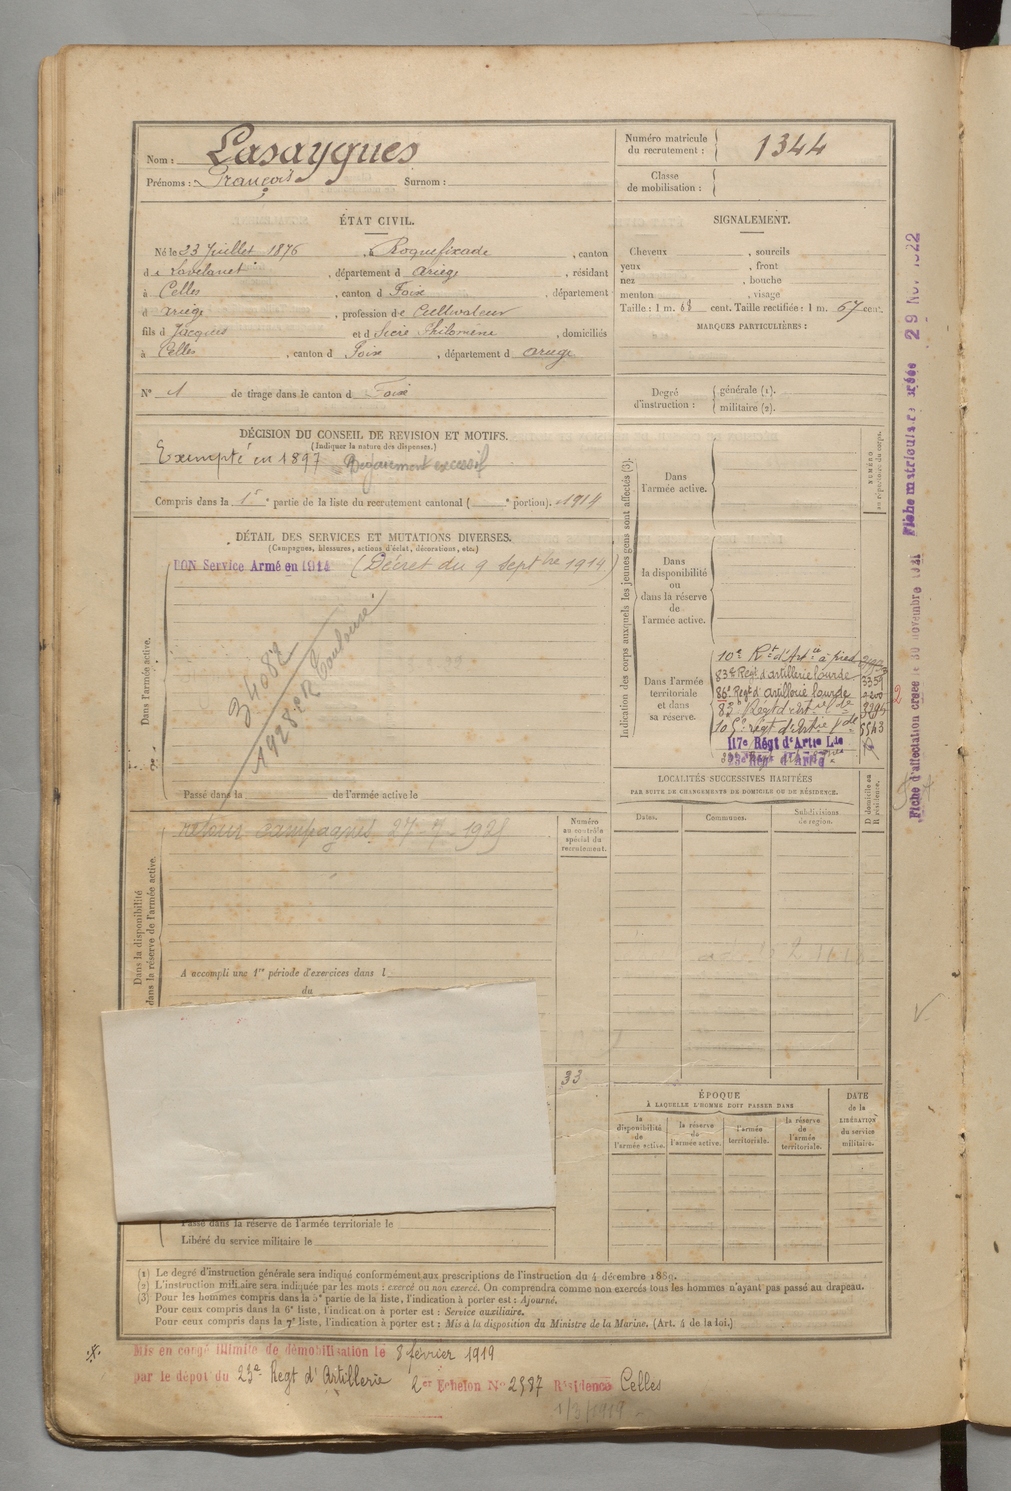 Nom : Lasaygues
Prénoms : François Surnom :
Numéro matricule du recrutement : 1344
Classe de mobilisation :
ÉTAT CIVIL.
Né le 23 Juillet 1876 , à Roquefixade , canton
de Lavelanet , département d Ariège , résidant
à Celles , canton d Foix , département
d Ariège , profession de Cultivateur
fils d Jacques et d Sicre Philomène , domiciliés
à Celles , canton d Foix , département d Ariège
N° 1 de tirage dans le canton d Foix
SIGNALEMENT.
Cheveux , sourcils
yeux , front
nez , bouche
menton , visage
Taille : 1 m. 68 cent. Taille rectifiée : 1 m. 67 cent.
MARQUES PARTICULIÈRES :
Degré d'instruction : générale (1).
militaire (2).
DÉCISION DU CONSEIL DE REVISION ET MOTIFS.
(Indiquer la nature des dispenses.)
Exempté en 1897
Compris dans la 1re partie de la liste du recrutement cantonal ( e portion). 1914
DÉTAIL DES SERVICES ET MUTATIONS DIVERSES.
(Campagnes, blessures, actions d'éclat, décorations, etc.)
BON Service Armé en 1914 (Décret du 9 septbre 1919)
34082
1928 R Toulouse
Dans l'armée active.
Passé dans la de l'armée active le
retour campagnes 27-7-1928
Numéro au contrôle spécial du recrutement.
Dans la disponibilité
dans la réserve de l'armée active.
A accompli une 1re période d'exercices dans l
du
33
Passé dans la réserve de l'armée territoriale le
Libéré du service militaire le
Indication des corps auxquels les jeunes gens sont affectés (3).
NUMÉRO au répertoire du corps.
Dans l'armée active.
Dans la disponibilité ou dans la réserve de l'armée active.
Dans l'armée territoriale et dans sa réserve.
10e Rt d'Artie à pied
83e Régt d'artillerie lourde 3359
86e Régt d'artillerie lourde
83e Régt d'Artie lde 3295
105e régt d'Artie lde 5543
117e Régt d'Artie Lde
LOCALITÉS SUCCESSIVES HABITÉES
PAR SUITE DE CHANGEMENTS DE DOMICILE OU DE RÉSIDENCE.
Dates. Communes. Subdivisions de région. D domicile ou R résidence.
ÉPOQUE
À LAQUELLE L'HOMME DOIT PASSER DANS
la disponibilité de l'armée active.
la réserve de l'armée active.
l'armée territoriale.
la réserve de l'armée territoriale.
DATE de la LIBÉRATION du service militaire.
Fiche d'affectation créée le 30 novembre 1921 Fiche matricule créée 29 Nov. 1922
2
(1) Le degré d'instruction générale sera indiqué conformément aux prescriptions de l'instruction du 4 décembre 1889.
(2) L'instruction militaire sera indiquée par les mots : exercé ou non exercé. On comprendra comme non exercés tous les hommes n'ayant pas passé au drapeau.
(3) Pour les hommes compris dans la 5e partie de la liste, l'indication à porter est : Ajourné.
Pour ceux compris dans la 6e liste, l'indication à porter est : Service auxiliaire.
Pour ceux compris dans la 7e liste, l'indication à porter est : Mis à la disposition du Ministre de la Marine. (Art. 4 de la loi.)
Mis en congé illimité de démobilisation le 8 février 1919
par le dépôt du 23e Régt d'Artillerie 2er Echelon No 2587 Résidence Celles
1/3/1919